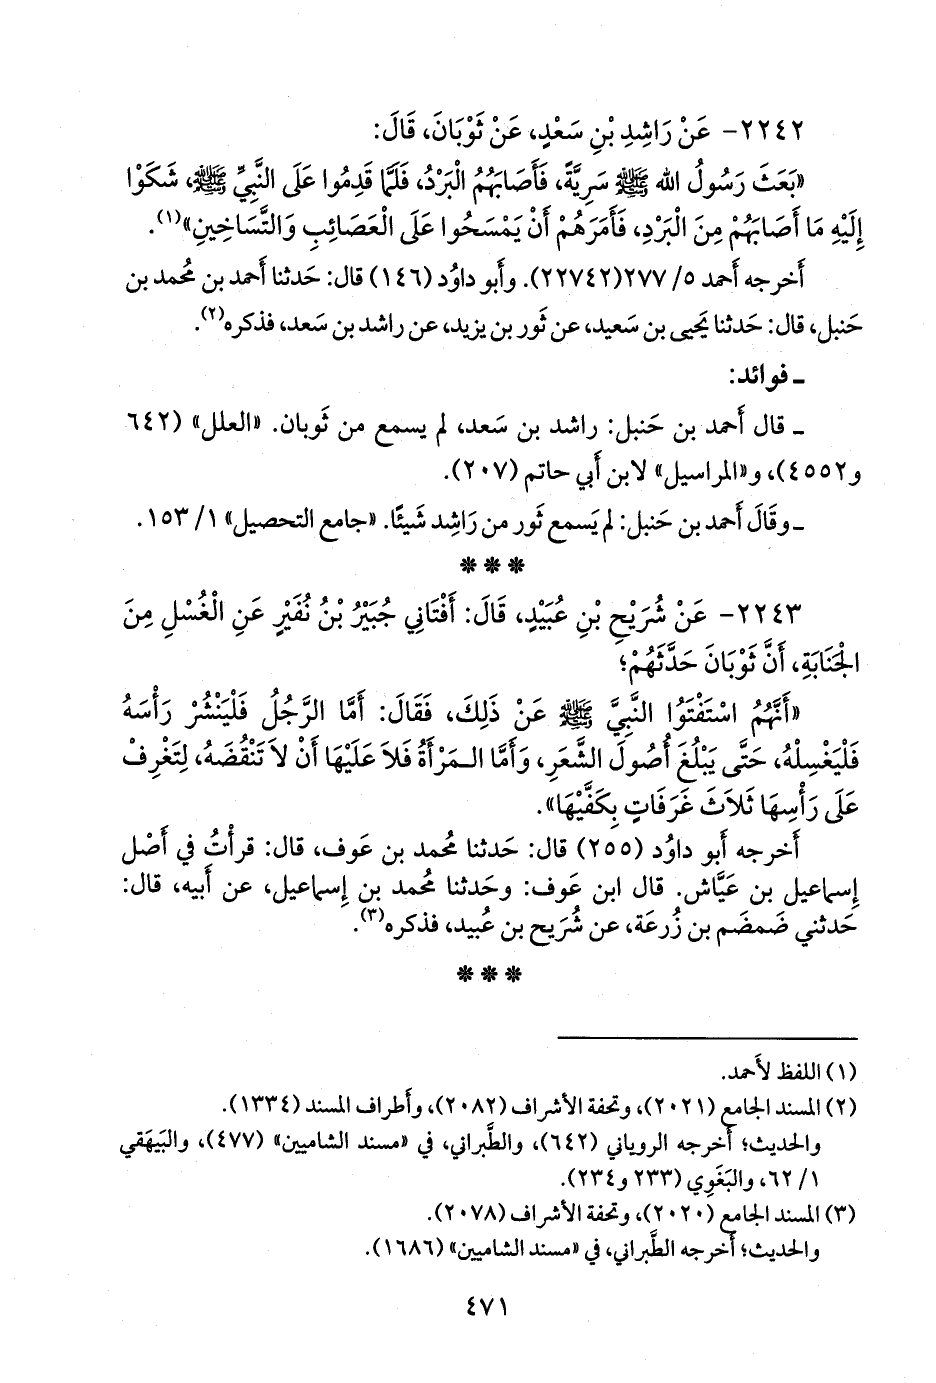 ٢٢٤٢- عَنْ رَاشِدِ بْنِ سَعْدٍ، عَنْ ثَوْبَانَ، قَالَ:
«بَعَثَ رَسُولُ الله ﷺ سَرِيَّةً، فَأَصَابَهُمُ الْبَرْدُ، فَلَمَّا قَدِمُوا عَلَى النَّبِيِّ ﷺ، شَكَوْا
إِلَيْهِ مَا أَصَابَهُمْ مِنَ الْبَرْدِ، فَأَمَرَهُمْ أَنْ يَمْسَحُوا عَلَى الْعَصَائِبِ وَالتَّسَاخِينِ»(١).
أخرجه أحمد ٥/ ٢٧٧(٢٢٧٤٢). وأبو داوُد (١٤٦) قال: حَدثنا أحمد بن مُحمد بن
حَنبل، قال: حَدثنا يَحيى بن سَعيد، عن ثَور بن يزيد، عن راشد بن سَعد، فذكره(٢).
ـ فوائد:
ـ قال أحمد بن حَنبل: راشد بن سَعد، لم يسمع من ثَوبان. «العلل» (٦٤٢
و٤٥٥٢)، و«المراسيل» لابن أبي حاتم (٢٠٧).
ـ وقَالَ أحمد بن حَنبل: لم يَسمع ثَور من رَاشِد شَيئًا. «جامع التحصيل» ١/ ١٥٣.
***
٢٢٤٣- عَنْ شُرَيْحِ بْنِ عُبَيْدٍ، قَالَ: أَفْتَانِي جُبَيْرُ بْنُ نُفَيْرٍ عَنِ الْغُسْلِ مِنَ
الْجَنَابَةِ، أَنَّ ثَوْبَانَ حَدَّثَهُمْ؛
«أَنَّهُمُ اسْتَفْتَوُا النَّبِيَّ ﷺ عَنْ ذَلِكَ، فَقَالَ: أَمَّا الرَّجُلُ فَلْيَنْشُرْ رَأْسَهُ
فَلْيَغْسِلْهُ، حَتَّى يَبْلُغَ أُصُولَ الشَّعَرِ، وَأَمَّا الـمَرْأَةُ فَلاَ عَلَيْهَا أَنْ لاَ تَنْقُضَهُ، لِتَغْرِفْ
عَلَى رَأْسِهَا ثَلاَثَ غَرَفَاتٍ بِكَفَّيْهَا».
أخرجه أبو داوُد (٢٥٥) قال: حَدثنا مُحمد بن عَوف، قال: قرأْتُ في أَصْل
إسماعيل بن عَيَّاش. قال ابن عَوف: وحَدثنا مُحمد بن إسماعيل، عن أبيه، قال:
حَدثني ضَمضَم بن زُرعَة، عن شُرَيح بن عُبيد، فذكره(٣).
***
(١) اللفظ لأحمد.
(٢) المسند الجامع (٢٠٢١)، وتحفة الأشراف (٢٠٨٢)، وأطراف المسند (١٣٣٤).
والحديث؛ أخرجه الروياني (٦٤٢)، والطَّبراني، في «مسند الشاميين» (٤٧٧)، والبَيهَقي
١/ ٦٢، والبَغَوِي (٢٣٣ و٢٣٤).
(٣) المسند الجامع (٢٠٢٠)، وتحفة الأشراف (٢٠٧٨).
والحديث؛ أخرجه الطَّبراني، في «مسند الشاميين» (١٦٨٦).
٤٧١